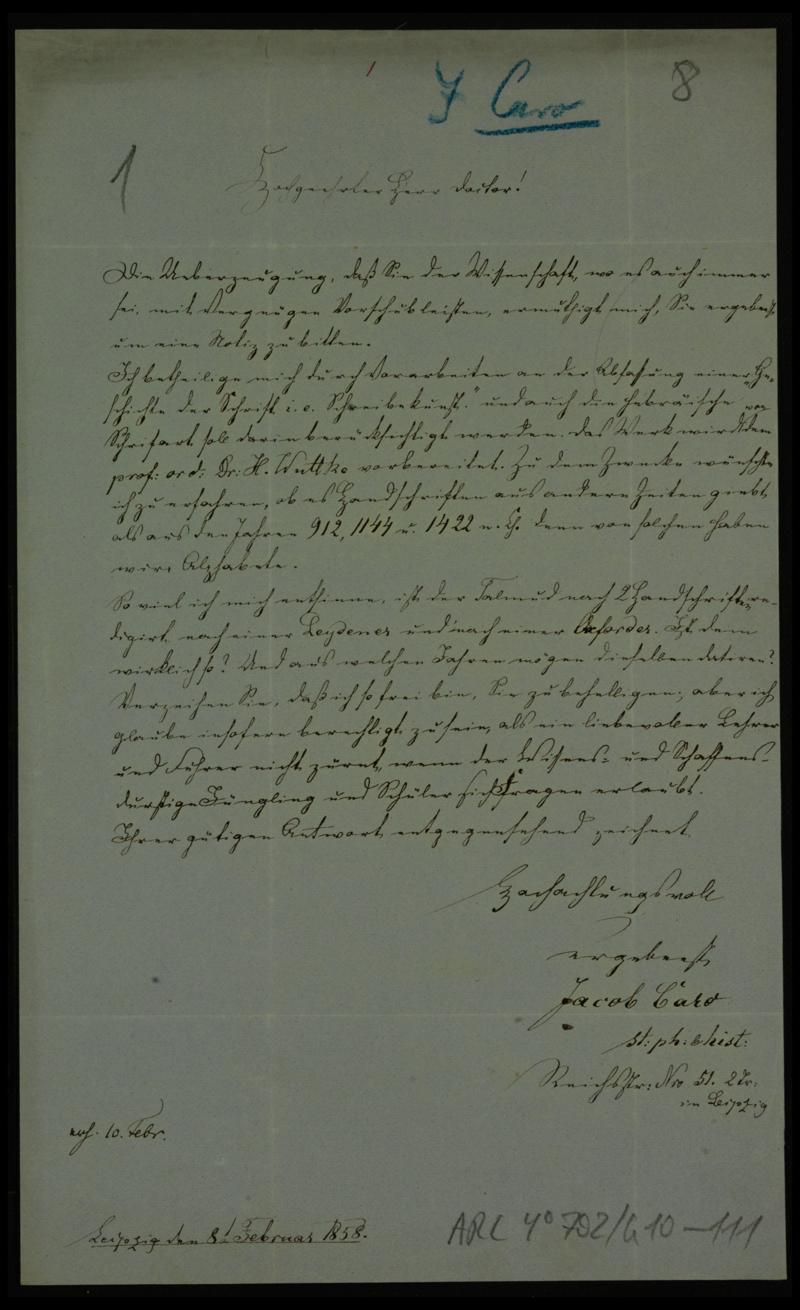 J Caro
8
1
Hochgeehrter Herr Doctor!
Die Ueberzeugung, daß Sie der Wissenschaft, wo es auch immer
sei, mit Vergnügen Vorschub leisten, ermuthigt mich, Sie ergebenst
um eine Notiz zu bitten.
Ich betheilige mich durch Vorarbeiten an der Abfassung einer „Ge-
schichte der Schrift i. e. Schreibekunst." und auch die hebräische
Schrifart soll darin berücksichtigt werden. Das Werk wird von dem
prof: ord: Dr: H. Wuttke vorbereitet. Zu dem Zwecke wünschte
ich zu erfahren, ob es Handschriften aus andern Zeiten giebt,
als aus den Jahren 912, 1144 u. 1422 n. Ch. denn von solchen haben
wir Alphabete.
So viel ich mich entsinne, ist der Talmud nach 2 Handschriften re-
digirt, nach einer Leydener und nach einer Oxforder. Ist dem
wirklich so? Und aus welchen Jahren mögen dieselben datiren?
Verzeihen Sie, daß ich so frei bin, Sie zu behelligen; aber ich
glaube insofern berechtigt zu sein, als ein liebevoller Lehrer
und Führer nicht zürnt, wenn der Wissens- und Schaffens-
durstige Jüngling und Schüler sich Fragen erlaubt.
Ihrer gütigen Antwort entgegensehend zeichnet
Hochachtungsvoll
ergebenst
Jacob Caro
st: ph: & hist:
Reichsstr: Nro 51. 2 Tr.
in Leipzig
10. Febr.
Leipzig den 8t Februar 1858.
ARC 4° 792/G10-111